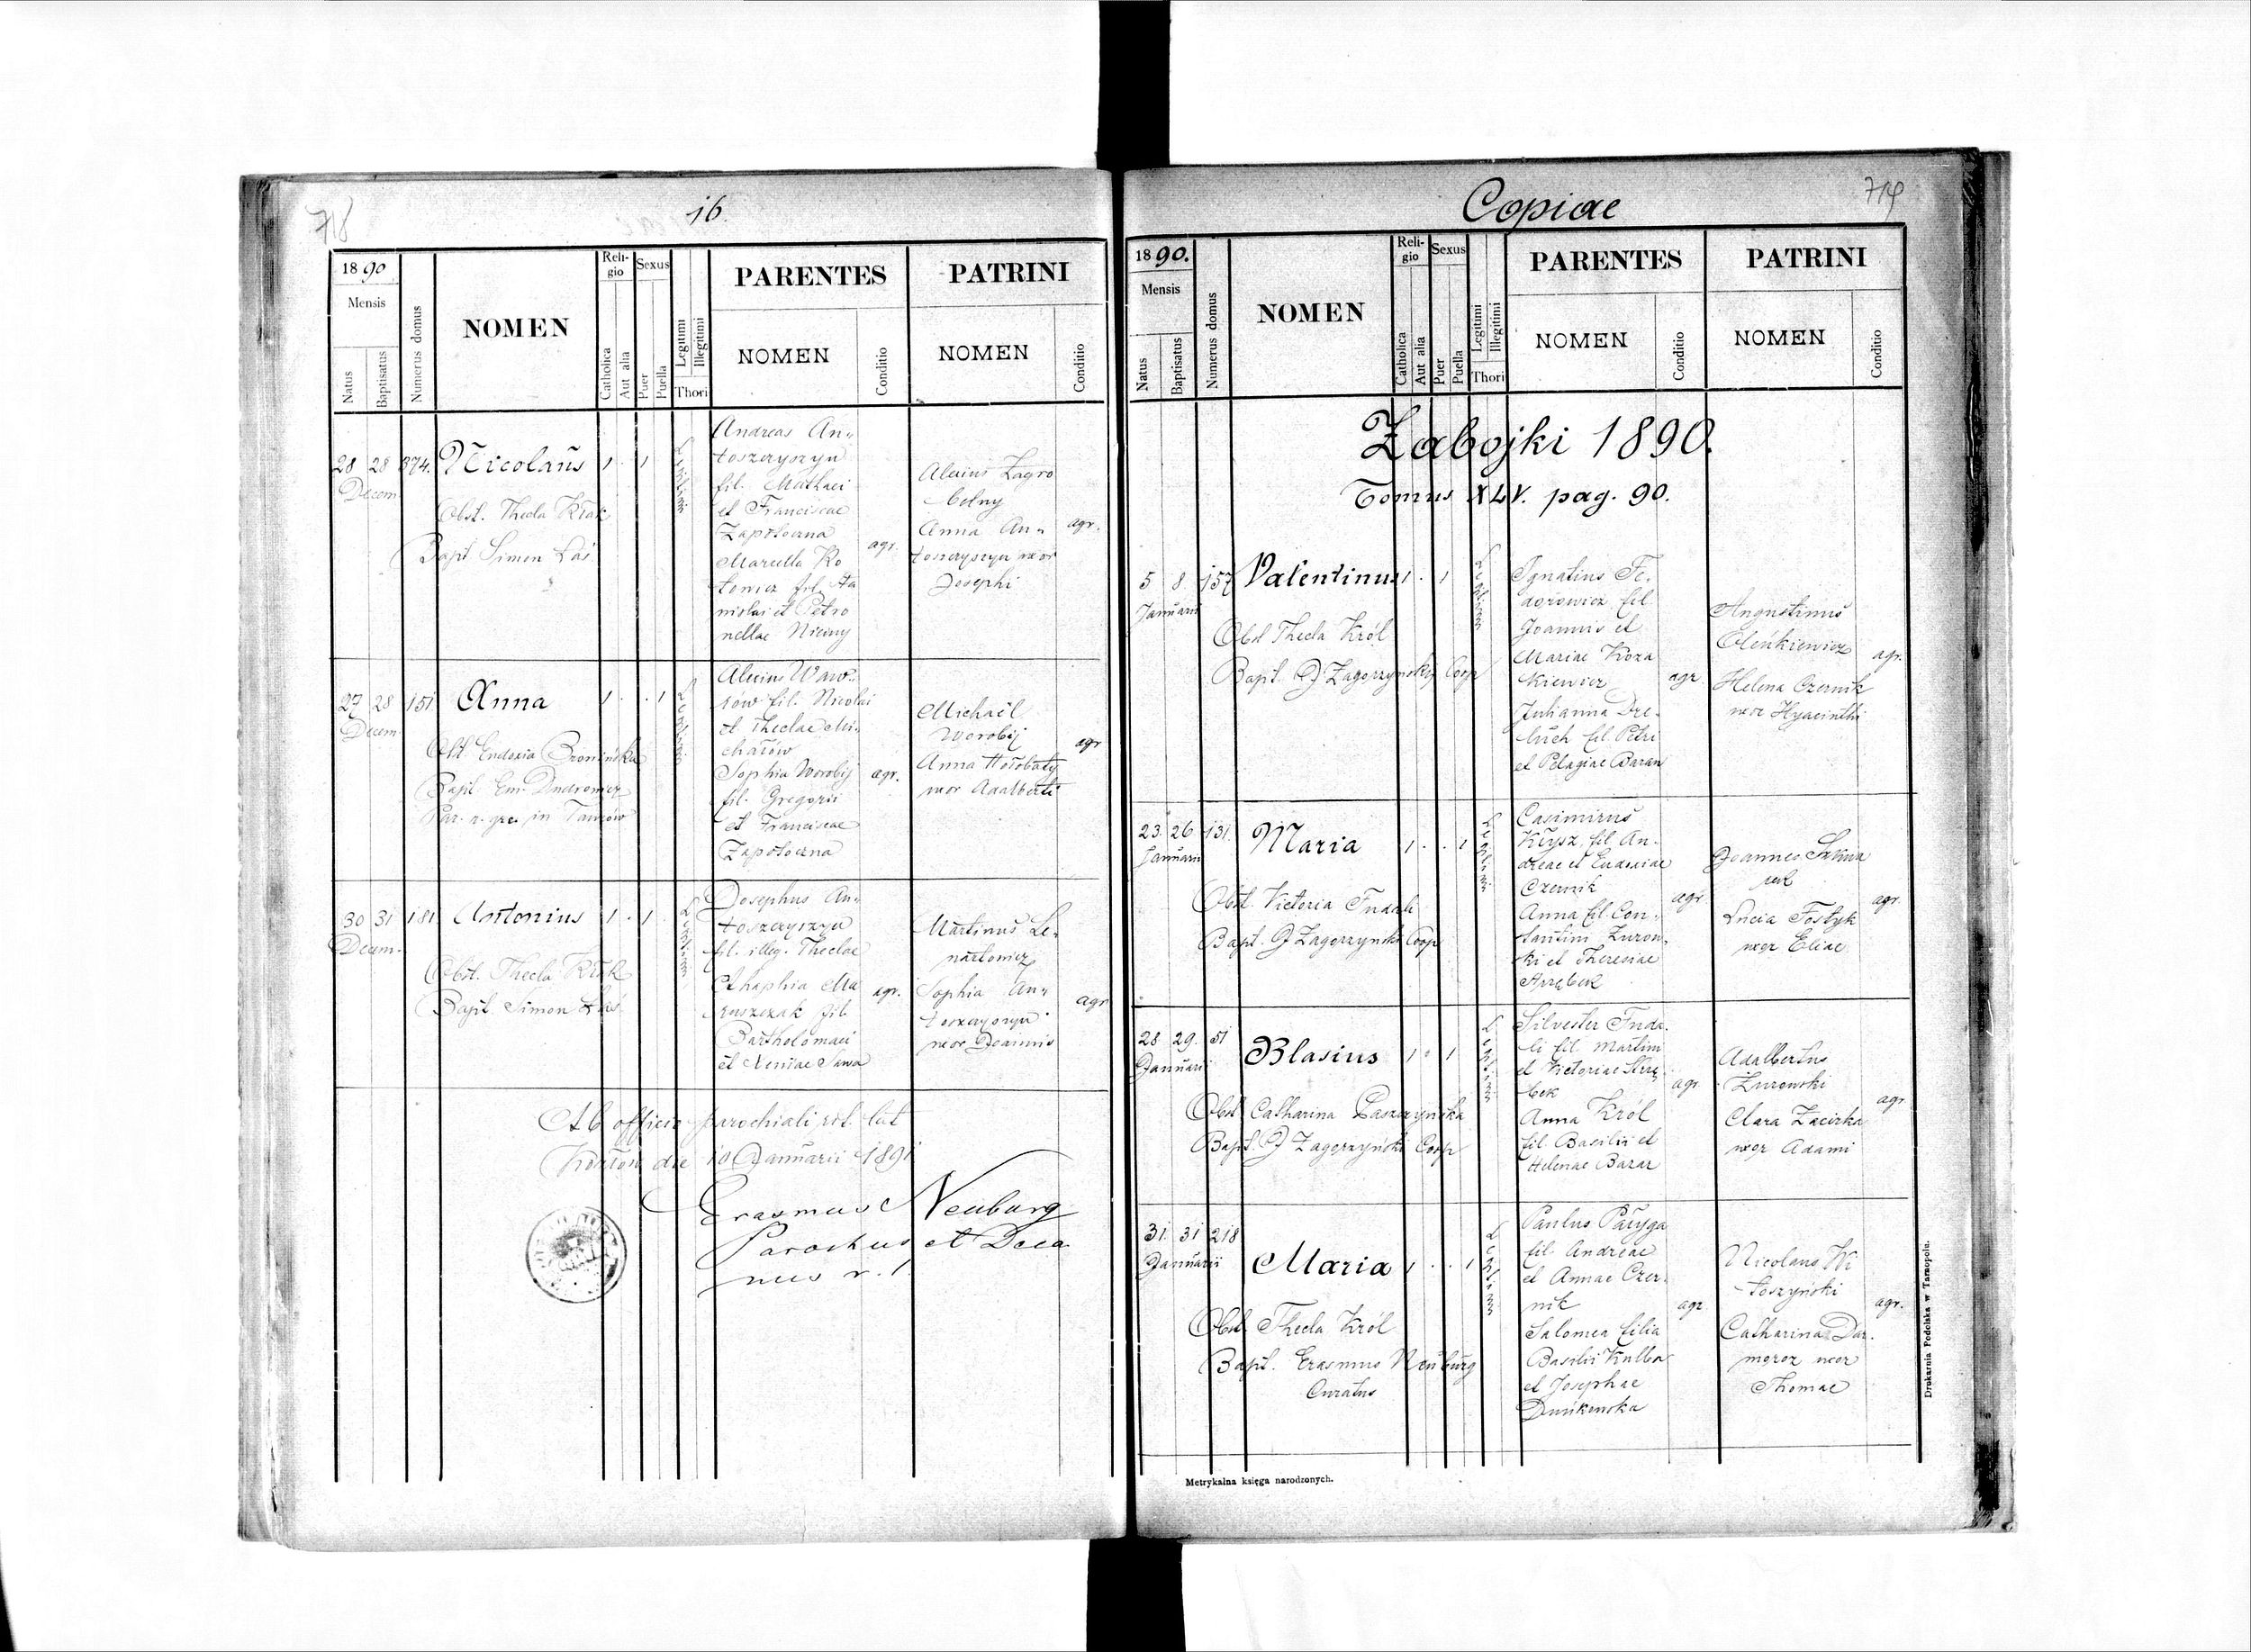 718
16.
1890
Mensis
Natus
Baptisatus
Numerus domus
NOMEN
Reli-
gio
Catholica
Aut alia
Sexus
Puer
Puella
Legitimi
Illegitimi
Thori
PARENTES
NOMEN
Conditio
PATRINI
NOMEN
Conditio
28 28 374. Nicolaus 1 . 1
Decem.
Obst. Thecla Krak
Bapt. Simon Łaś
Legitimi
Andreas An-
toszczyszyn
fil. Mathaei
et Franciscae
Zapotoczna
Marcella Ko
towicz fil. Sta
nislai et Petro
nellae Niciny
agr.
Alexius Zagro
belny
Anna An-
toszczyszyn uxor
Josephi
agr.
27 28 151 Anna 1 . . 1
Decem.
Obst. Eudoxia Bronińska
Bapt. Em. Dudrowicz
Par. r. gr. in
Legitimi
Alexius Waw-
rów fil. Nicolai
et Theclae Mi-
chałów
Sophia Worobij
fil. Gregorii
et Franciscae
Zapotoczna
agr.
Michaël
Worobij
Anna Hołobaty
uxor Adalberti
agr
30 31 181 Antonius 1 . 1
Decem.
Obst. Thecla Krak
Bapt. Simon Łaś
Legitimi
Josephus An-
toszczyszyn
fil. illeg. Theclae
Ma
ruszczak fil.
Bartholomaei
et Xeniae Sawa
agr.
Martinus Le-
nartowicz
Sophia An-
toszczyszyn
uxor Joannis
agr
Ab officio parochiali rit. lat
die 10 Januarii 1891
Erasmus Neuburg
Parochus et Deca
nus r. l.
Copiae
719
1890.
Mensis
Natus
Baptisatus
Numerus domus
NOMEN
Reli-
gio
Catholica
Aut alia
Sexus
Puer
Puella
Legitimi
Illegitimi
Thori
PARENTES
NOMEN
Conditio
PATRINI
NOMEN
Conditio
Zabojki 1890.
Tomus XLV. pag. 90.
5 8 157 Valentinus 1 . 1
Januarii
Obst Thecla Król
Bapt. J Zagorzyński Coop
Legitimi
Ignatius Fe-
dorowicz fil.
Joannis et
Mariae Koza
kiewicz
Julianna Dre-
luch fil. Petri
et Pelagiae Baran
agr
Augustinus
Oleńkiewicz
Helena Czernik
uxor Hyacinthi
agr.
23. 26 131. Maria 1 . . 1
Januarii
Obst. Victoria Fudali
Bapt. J Zagorzyński Coop
Legitimi
Casimirus
Krysz fil. An-
dreae et Eudoxiae
Czernik
Anna fil. Con-
stantini Zurow-
ski et Theresiae
agr.
Joannes
Lucia Fostyk
uxor Eliae
agr.
28 29. 51 Blasius 1 . 1
Januarii
Obst Catharina Paszczyńska
Bapt. J Zagorzyński Coop
Silvester Fuda-
li fil. Martini
et Victoriae Skrę
bek
Anna Król
fil. Basilii et
Helenae Bazar
agr
Adalbertus
Żurowski
Clara Zacirka
uxor Adami
agr
31. 31 218 Maria 1 . . 1
Januarii
Obst. Thecla Król
Bapt. Erasmus Neuburg
Curatus
Paulus Paryga
fil. Andreae
et Annae Czer-
nik
Salomea filia
Basilii Kulba
et Josephae
Dunikowska
agr
Nicolaus Wi
toszyński
Catharina Dar-
moroz uxor
Thomae
agr.
Metrykalna księga narodzonych.
Drukarnia Podolska w Tarnopolu.